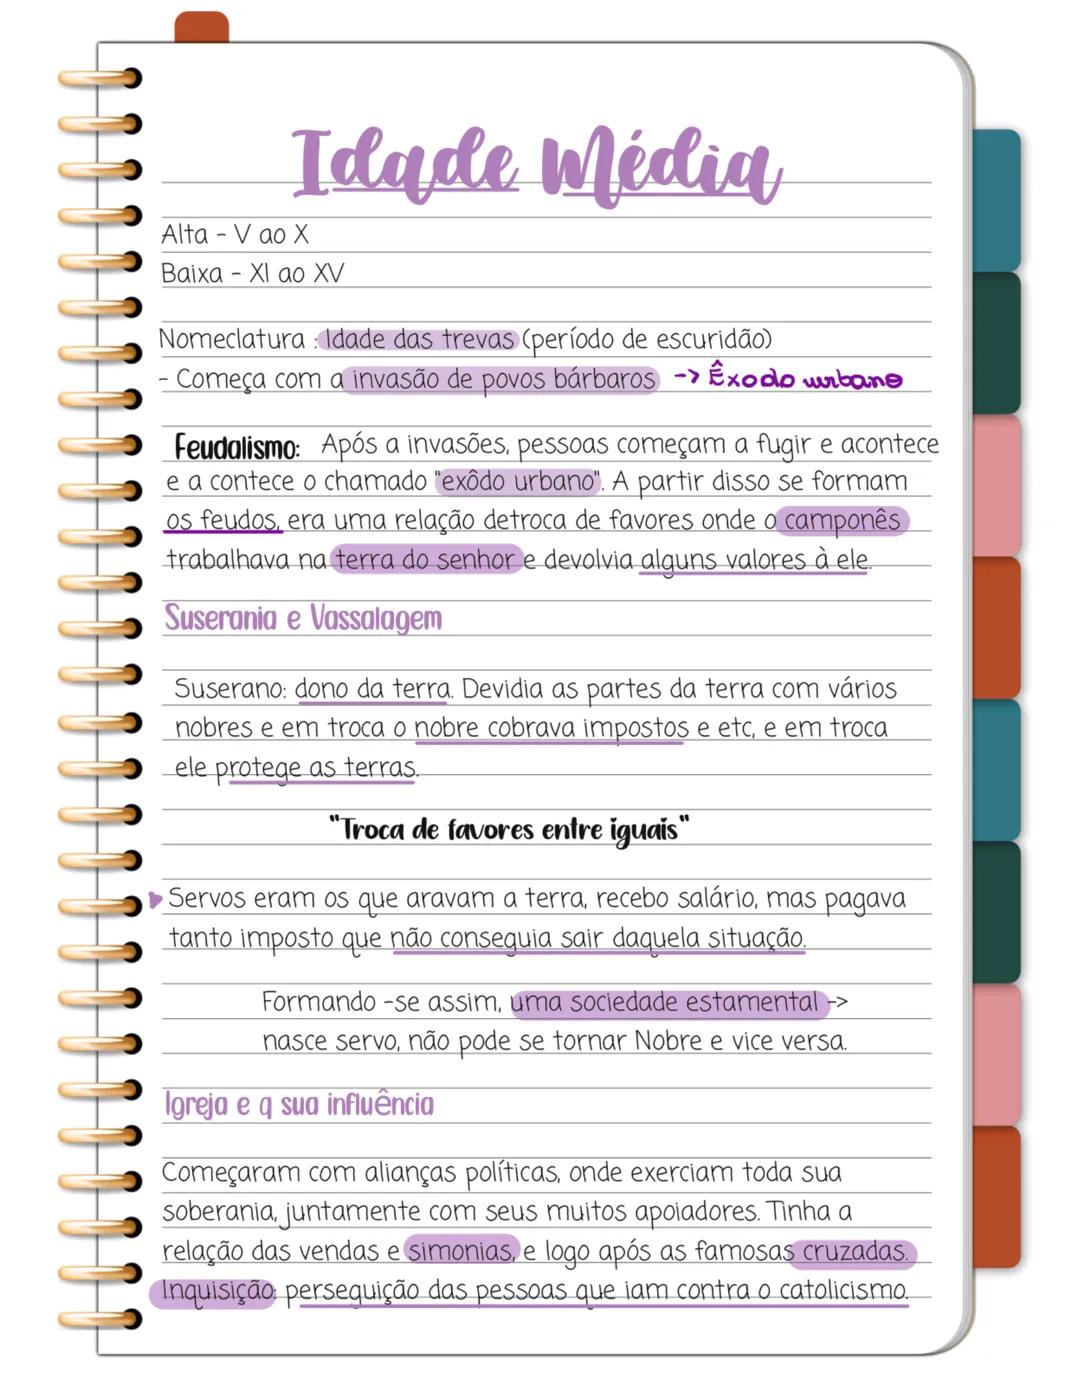 Idade Média
Alta - V ao X
Baixa - XI ao XV
Nomeclatura : Idade das trevas (período de escuridão)
- Começa com a invasão de povos bárbaros -> Êxodo urbano
Feudalismo: Após a invasões, pessoas começam a fugir e acontece
e a contece o chamado "exôdo urbano". A partir disso se formam
os feudos, era uma relação detroca de favores onde o camponês
trabalhava na terra do senhor e devolvia alguns valores à ele.
Suserania e Vassalagem
Suserano: dono da terra. Devidia as partes da terra com vários
nobres e em troca o nobre cobrava impostos e etc, e em troca
ele protege as terras.
"Troca de favores entre iguais"
Servos eram os que aravam a terra, recebo salário, mas pagava
tanto imposto que não conseguia sair daquela situação.
Formando -se assim, uma sociedade estamental ->
nasce servo, não pode se tornar Nobre e vice versa.
Igreja e q sua influência
Começaram com alianças políticas, onde exerciam toda sua
soberania, juntamente com seus muitos apoiadores. Tinha a
relação das vendas e simonias, e logo após as famosas cruzadas.
Inquisição: perseguição das pessoas que iam contra o catolicismo.